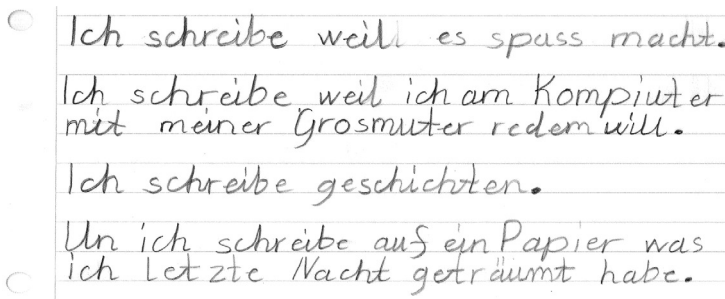 Ich schreibe weil es spass macht.
Ich schreibe weil ich am Kompiuter
mit meiner Grosmuter redem will.
Ich schreibe geschichten.
Un ich schreibe auf ein Papier was
ich letzte Nacht geträumt habe.